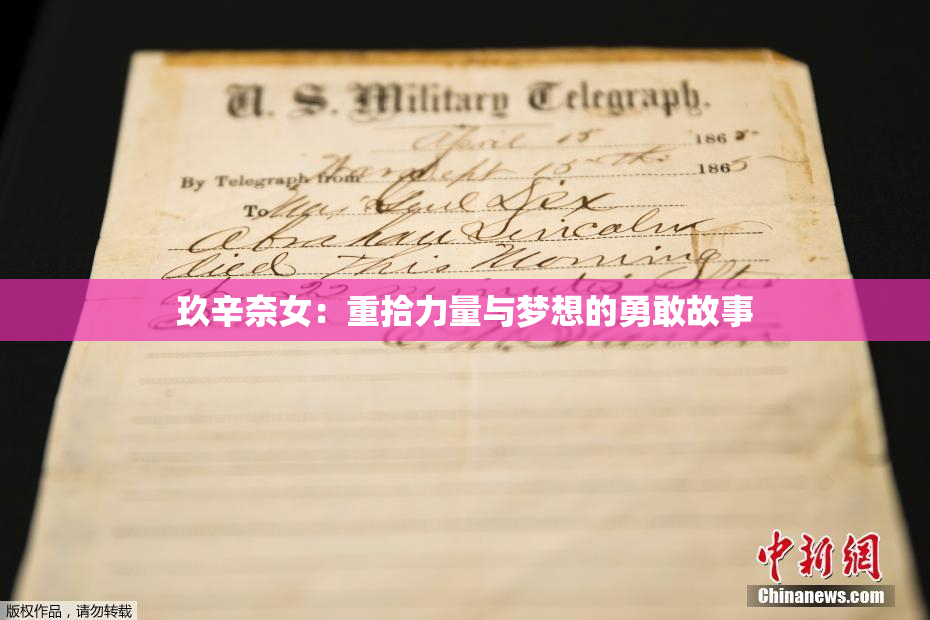 U. S. Military Telegraph.
April 15 1865
By Telegraph from War Dept 15th 1865
To Maj Genl Dix
Abraham Lincoln
died This Morning
at 22 minutes after
玖辛奈女：重拾力量与梦想的勇敢故事
E. M. Stanton
中新网
Chinanews.com
版权作品，请勿转载